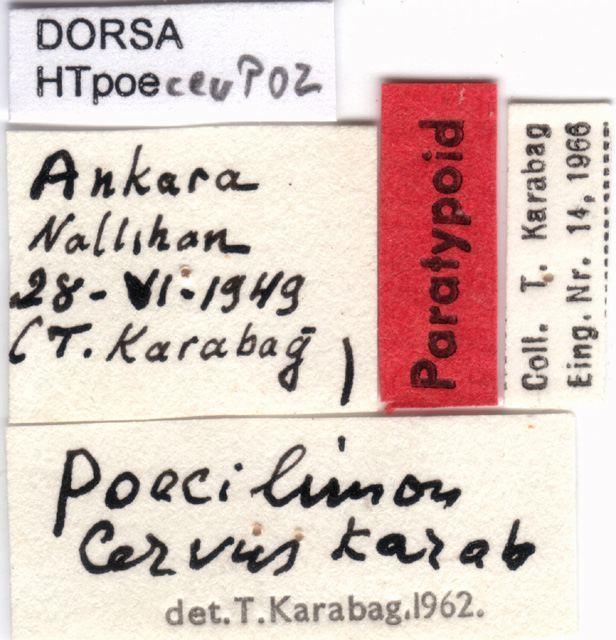 DORSA
HTpoeceuP02
Ankara
Nallıhan
28-VI-1949
(T. Karabağ)
Paratypoid
Coll. T. Karabag
Eing. Nr. 14, 1966
Poecilimon
Cervus karab
det.T.Karabag.1962.